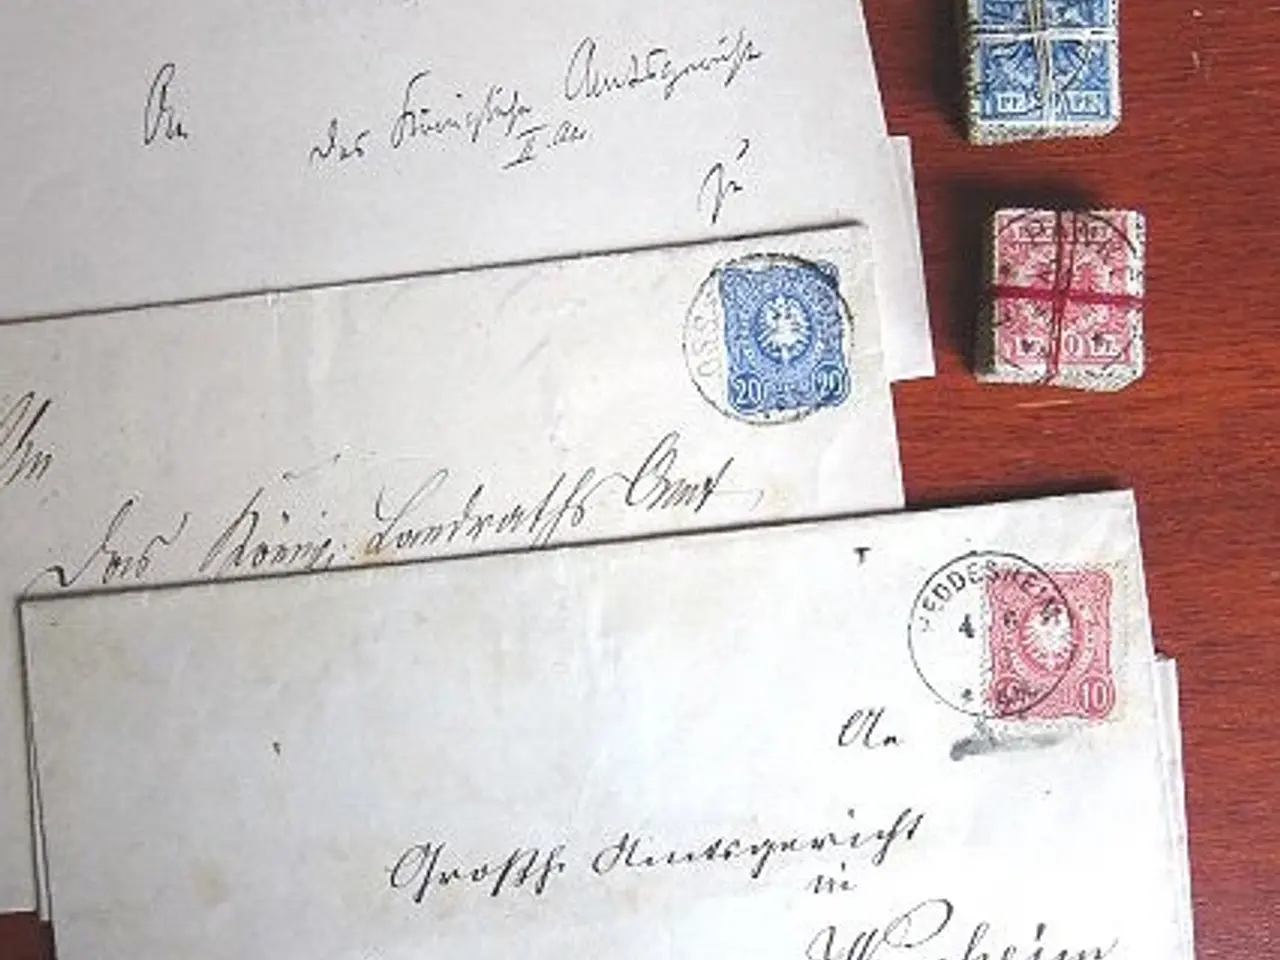 An
das Königliche Amtsgericht
II
zu
20 20
An
das Königl. Landraths Amt
HEDDESHEIM
4 6
10
An
Großh. Amtsgericht
in
PF